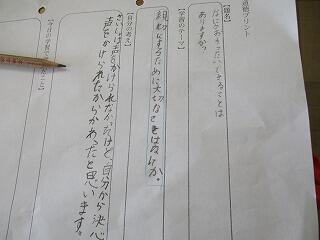 道徳プリント
【題名】
なにかおそっていることは
ありますか?
【学習のテーマ】
親切にするために大切なことはなにか。
【自分の考え】
さいしょは声をかけられなかったけど、自分から決心
声をかけられたからかあったと思います。
【今日の学習で